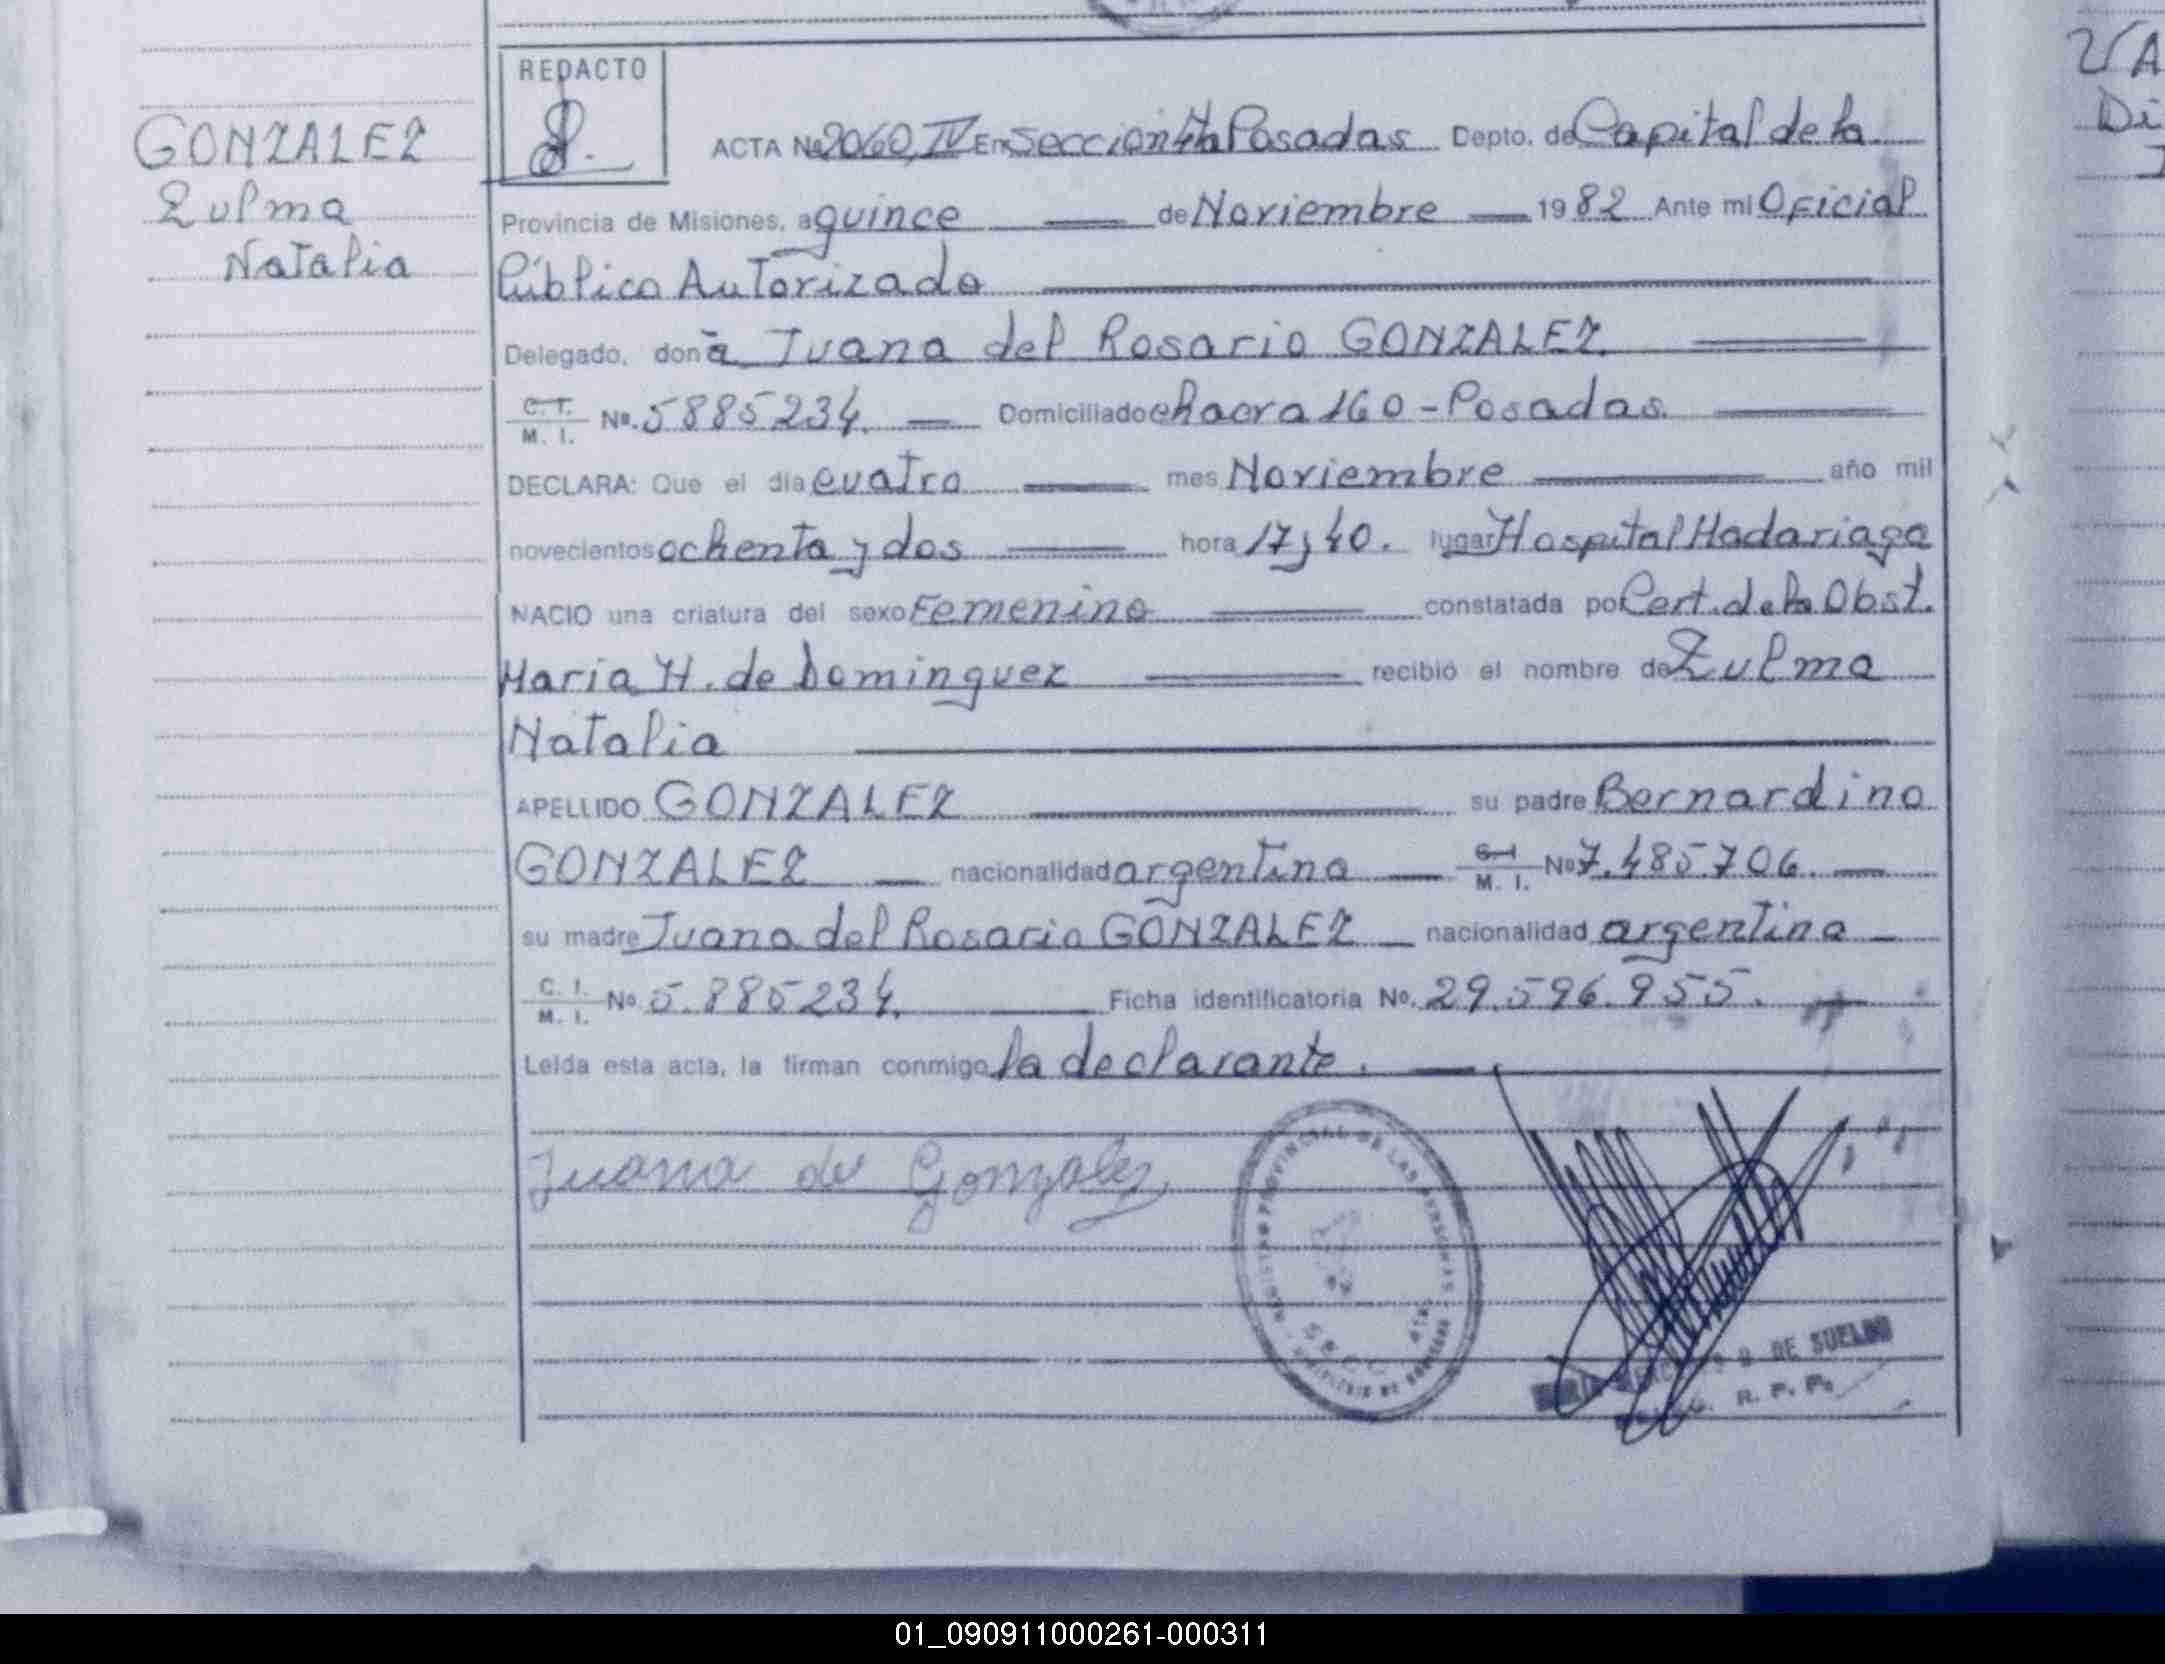 REDACTO
GONZALEZ
Zulma
Natalia
ACTA No 2060, IV En Sección 4ta Posadas Depto. de Capital de la
Provincia de Misiones, a quince de Noviembre 1982 Ante mi Oficial
Público Autorizado
Delegado, don a Juana del Rosario GONZALEZ
C. I. M. I. No. 5885234. Domiciliado chacra 160 - Posadas.
DECLARA: Que el día cuatro mes Noviembre año mil
novecientos ochenta y dos hora 17,40. lugar Hospital Madariaga
NACIO una criatura del sexo Femenino constatada por Cert. de la Obst.
Maria H. de Dominguez recibió el nombre de Zulma
Natalia
APELLIDO GONZALEZ su padre Bernardino
GONZALEZ nacionalidad argentina C. I. M. I. No 7.485.706.
su madre Juana del Rosario GONZALEZ nacionalidad argentina
C. I. M. I. No. 5.885234. Ficha identificatoria No. 29.596.955.
Leída esta acta, la firman conmigo la declarante.
Juana de Gonzalez
REGISTRO PROVINCIAL DE LAS PERSONAS
DE SUELDO
R. P. P.
01_090911000261-000311